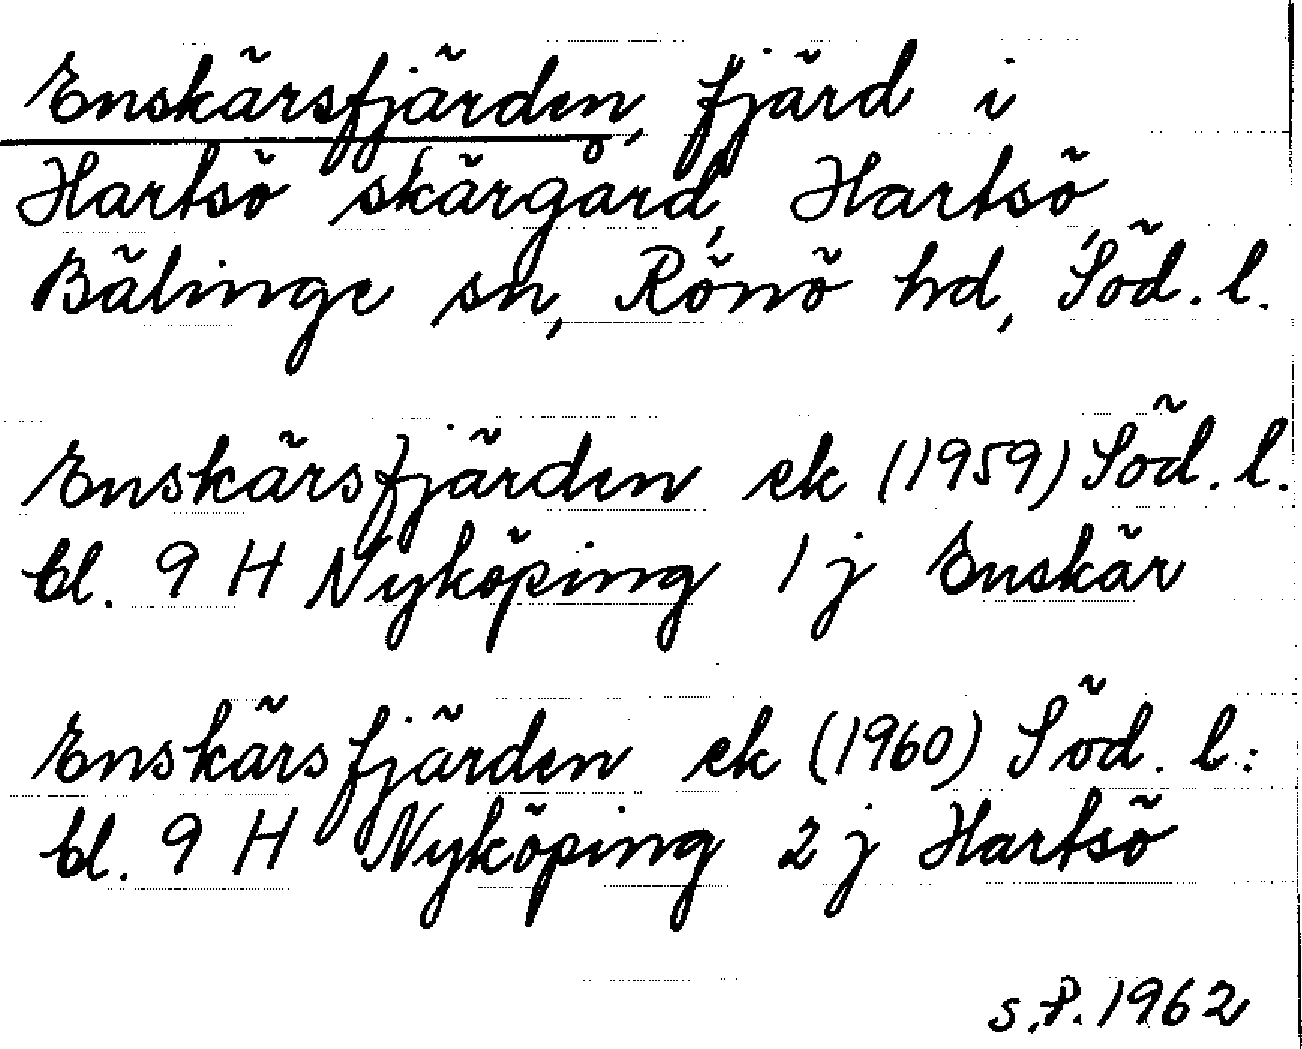 Enskärsfjärden, fjärd i
Hartsö skärgård, Hartsö,
Bälinge sn, Rönö hd, Söd. l.
Enskärsfjärden ek (1959) Söd. l.
bl. 9 H Nyköping 1 j Enskär
Enskärsfjärden ek (1960) Söd. l:
bl. 9 H Nyköping 2 j Hartsö
S.P. 1962